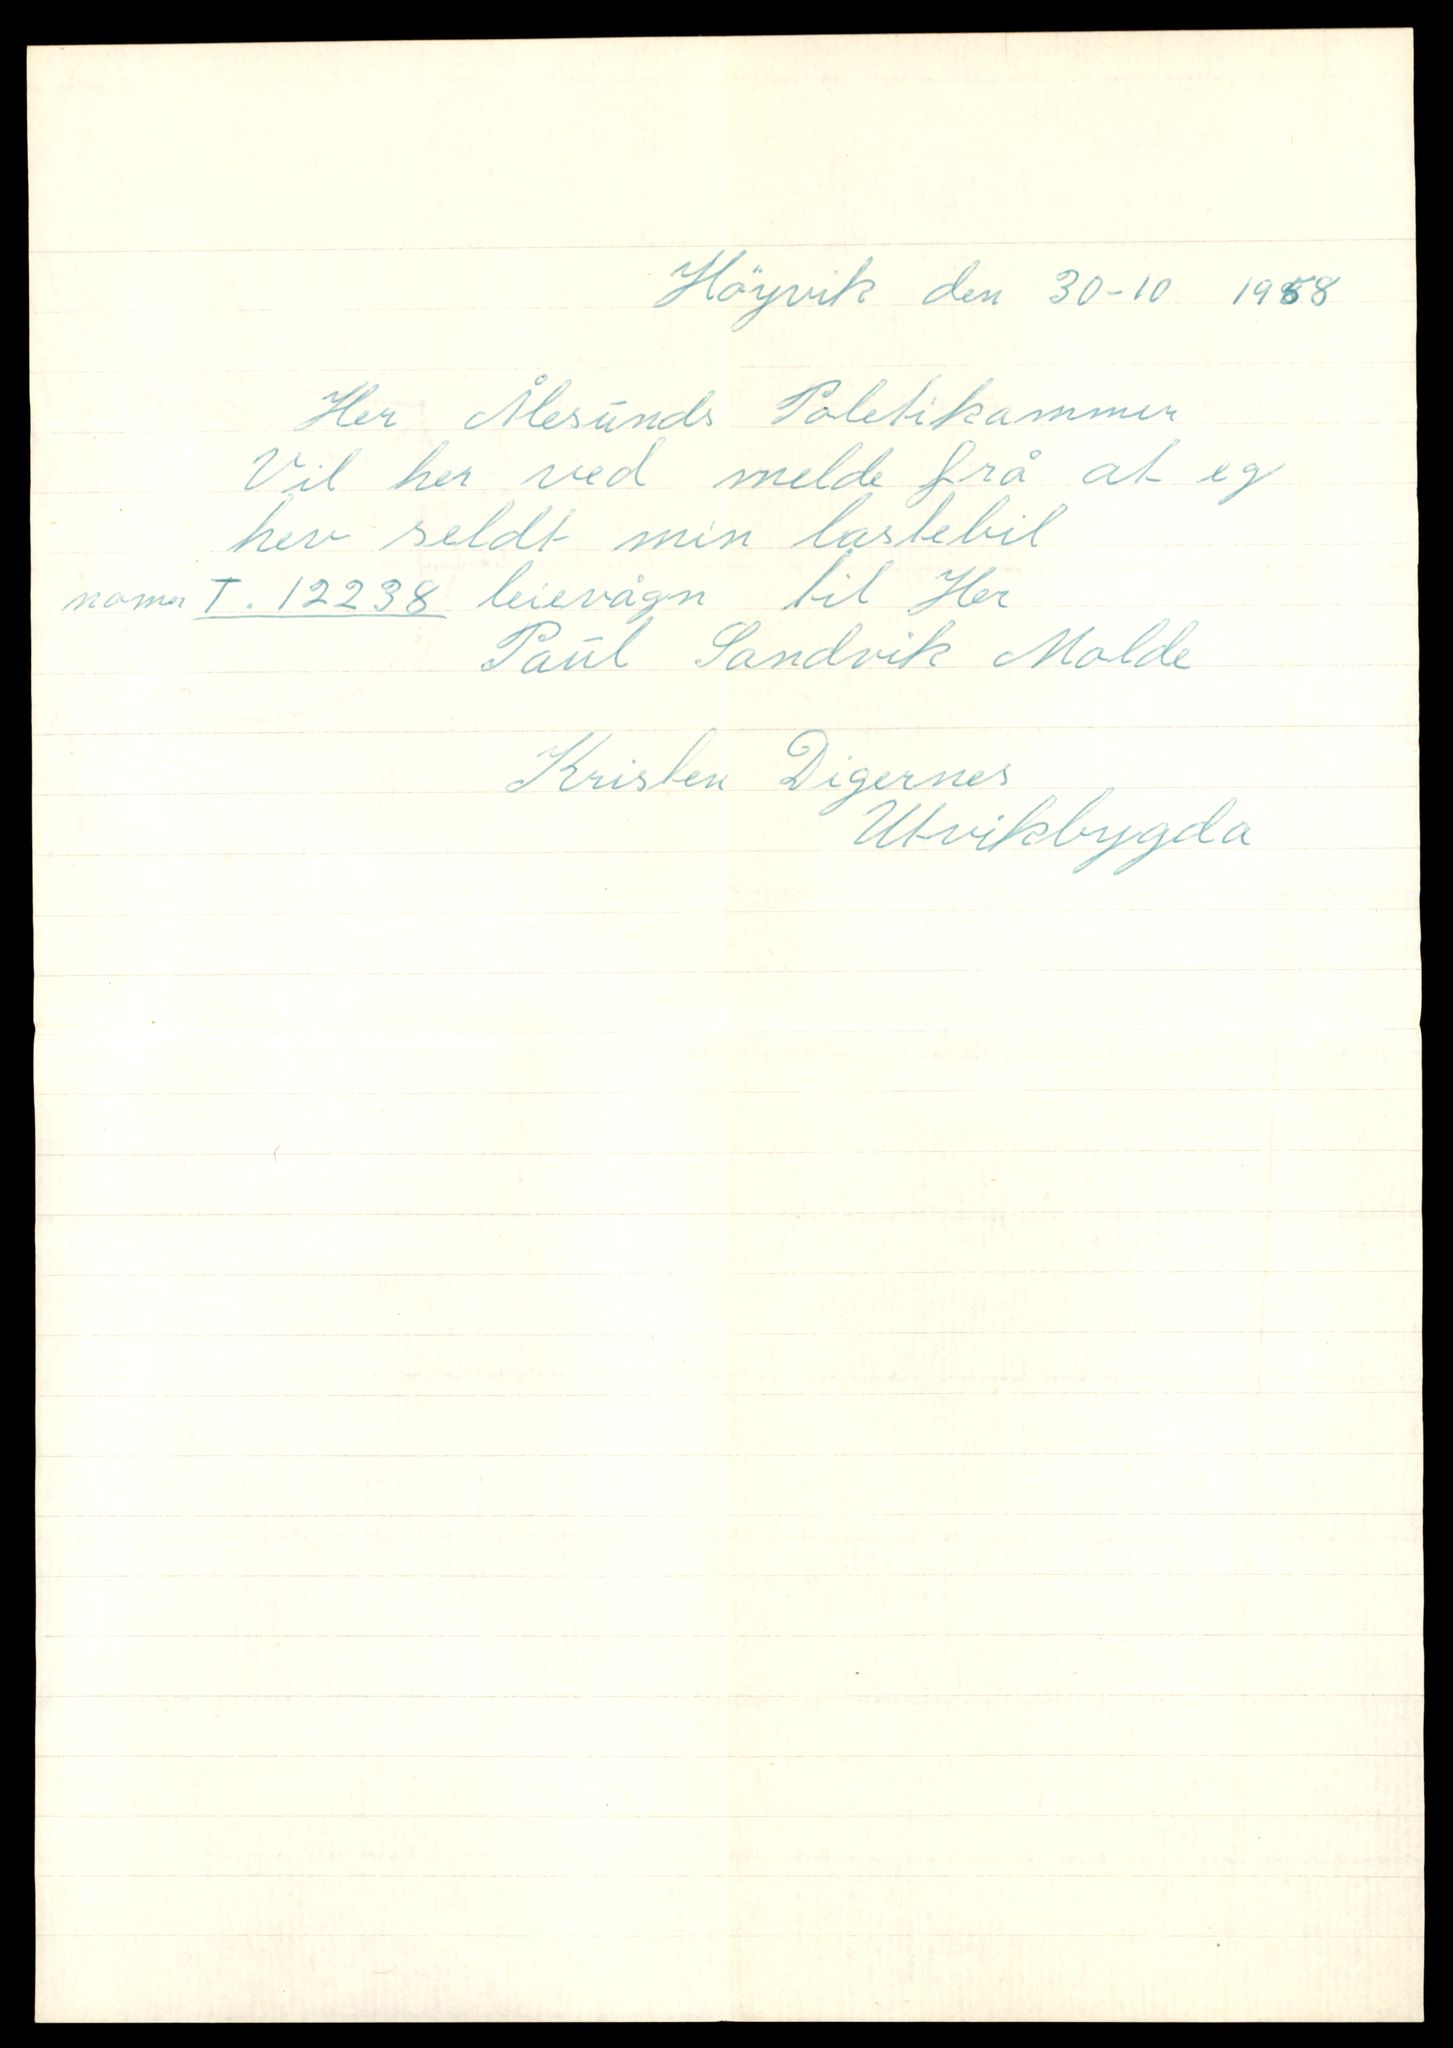 Höyvik den 30-10 1958
Her Ålesunds Poletikammer
Vil her ved melde frå at eg
hev seldt min lastebil
nomer T. 12238 leievågn til Her
Paul Sandvik Molde
Kristen Digernes
Utvikbygda